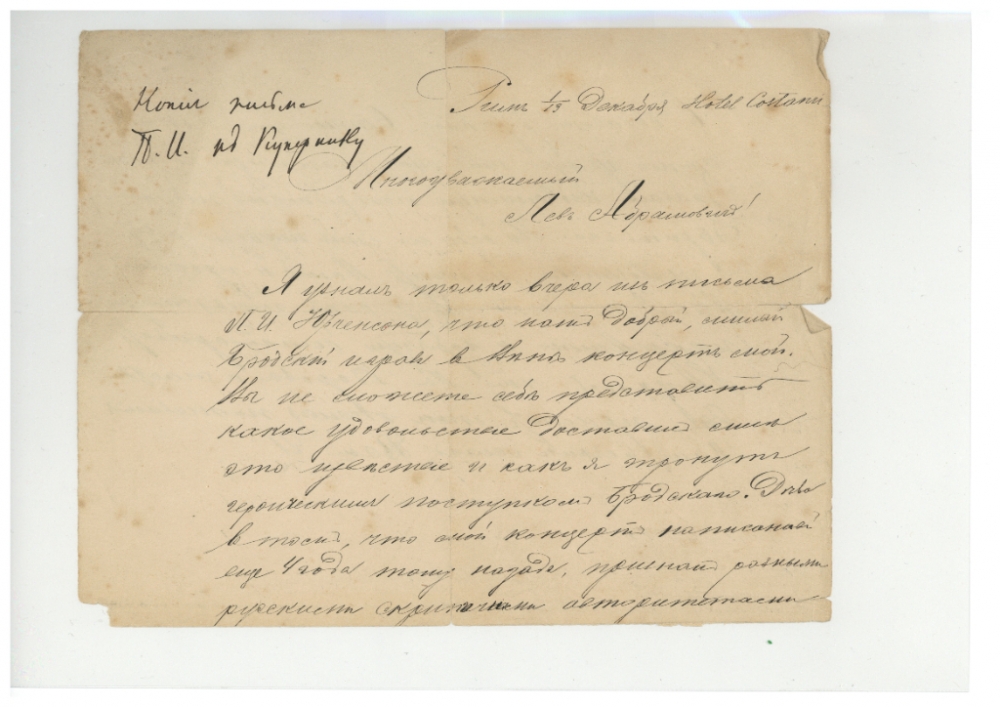 Копія письма
П. И. къ Купернику
Римъ 1/13 Декабря Hotel Costanzi
Многоуважаемый
Левъ Абрамовичъ!
Я узналъ только вчера изъ письма
П. И. Юргенсона, что нашъ добрый, милый
Бродскій игралъ в Вѣнѣ концертъ мой.
Вы не можете себѣ представить
какое удовольствіе доставило мнѣ
это извѣстіе и какъ я тронутъ
героическимъ поступкомъ Бродскаго. Дѣло
в томъ, что мой концертъ написанный
еще 4 года тому назадъ, признанъ разными
русскими скрипичными авторитетами